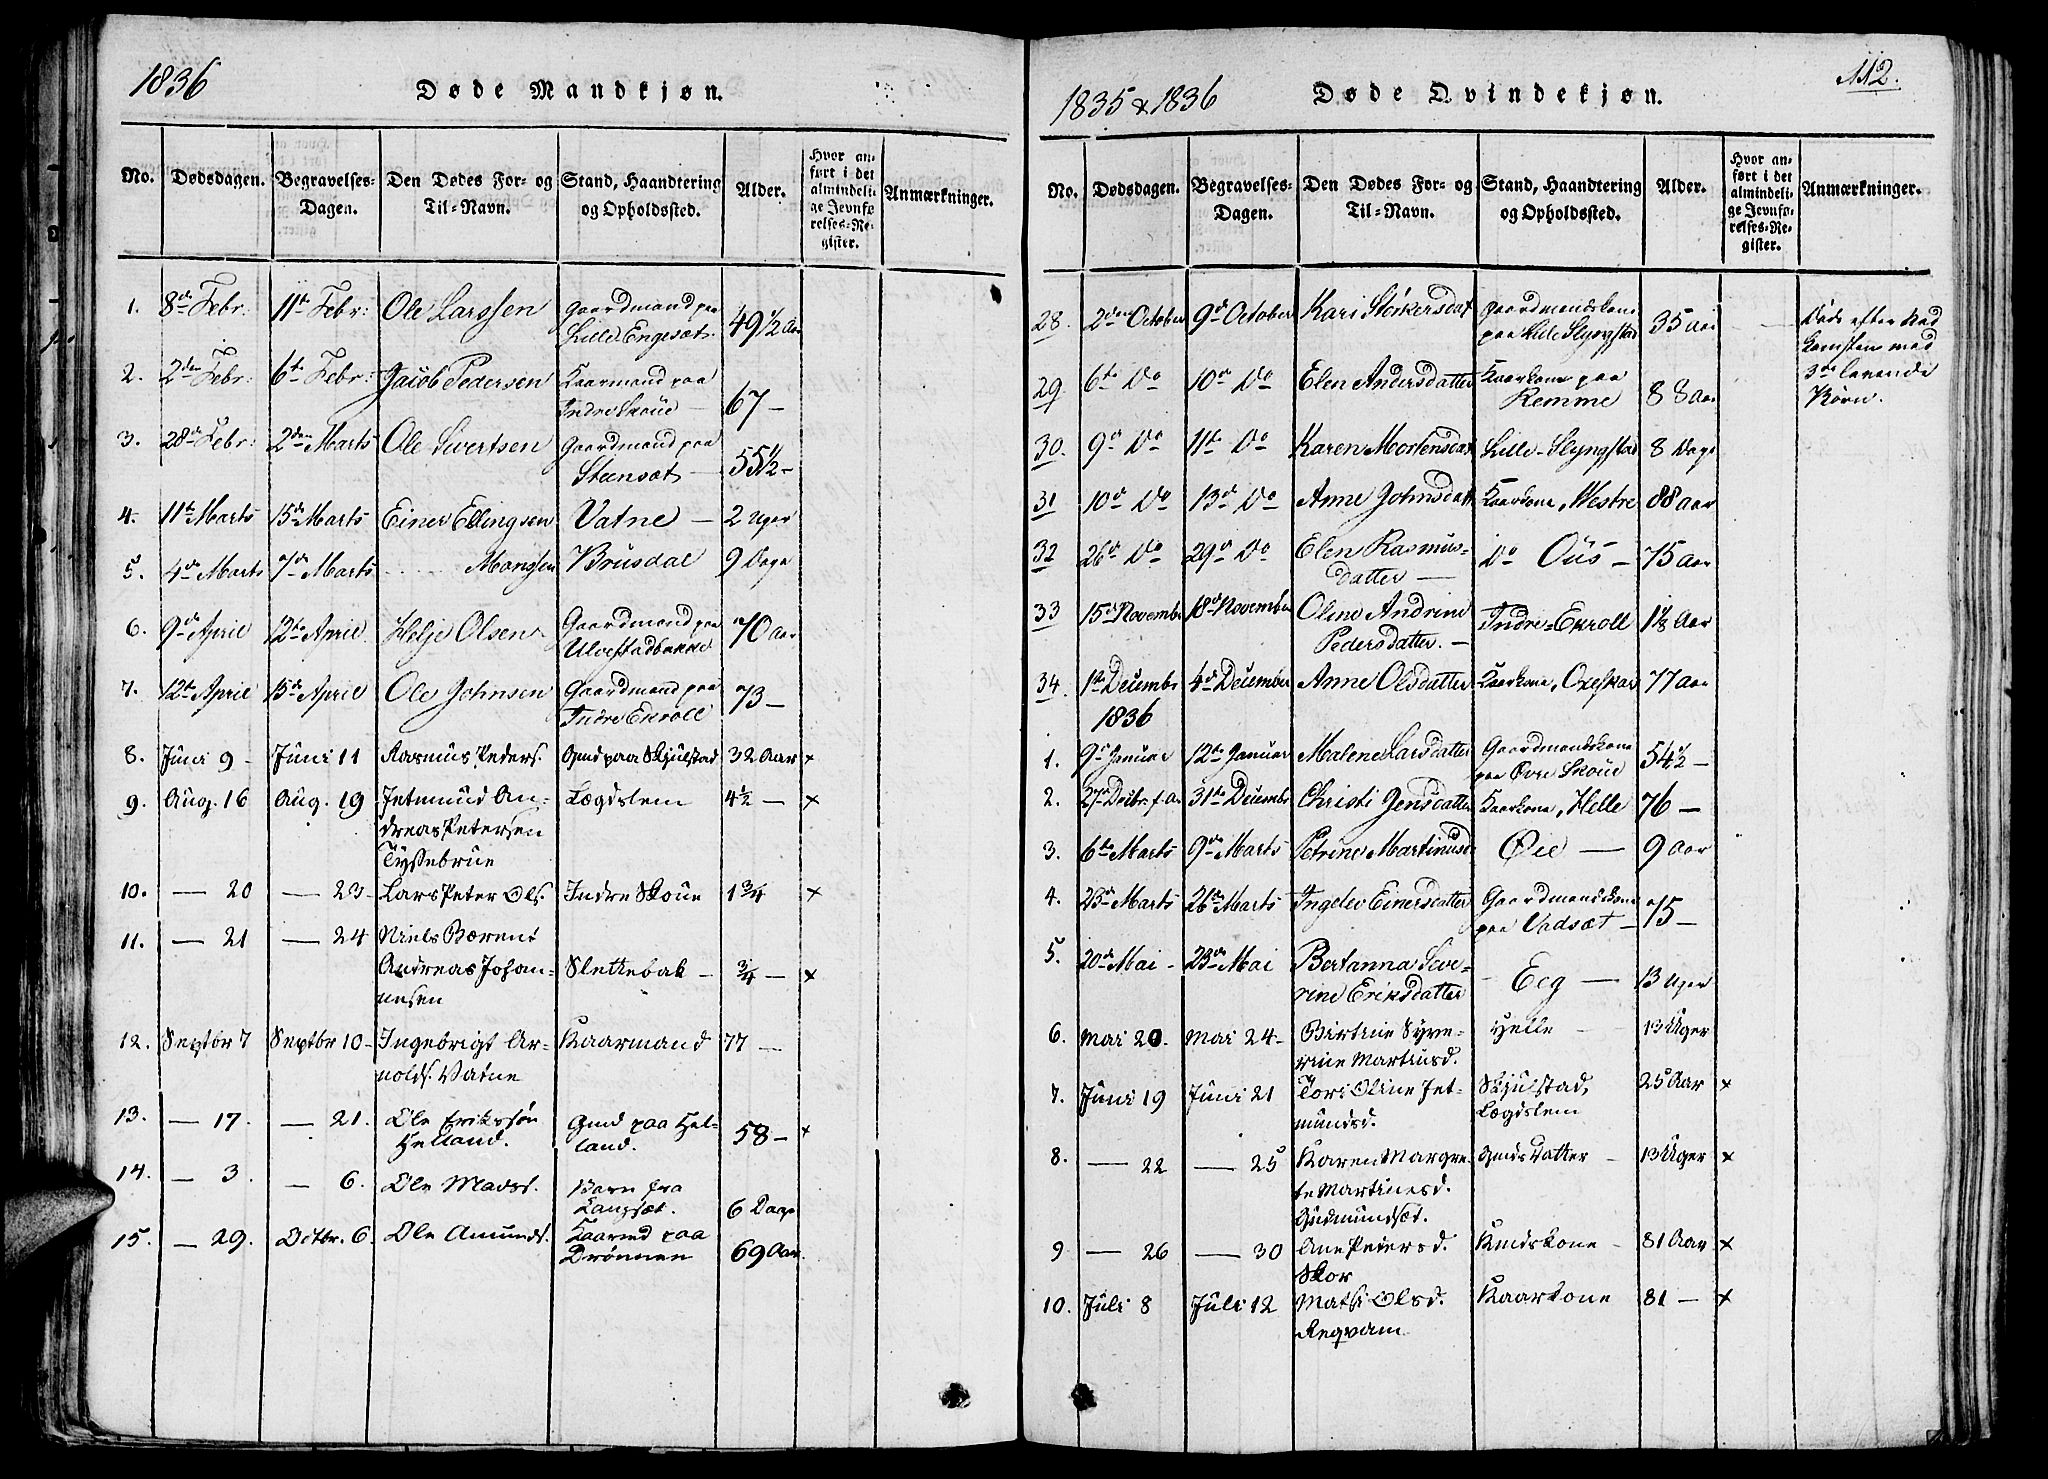 1836
Døde Mandkjøn.
No. Dødsdagen. Begravelses-Dagen. Den Dødes For- og Til-Navn. Stand, Haandtering og Opholdssted. Alder. Hvor anført i det almindelige Jevnførelses-Register. Anmærkninger.
1. 8de Febr: 11te Febr: Ole Larssen Gaardmand paa Lille Engesæt. 49 1/2 Aar
2. 2den Febr: 6te Febr: Jacob Pedersen Kaarmand paa Indre Skoue — 67 —
3. 28de Febr: 2den Marts Ole Sivertsen Gaardmand paa Steensæt — 55 1/2 —
4. 11te Marts 15de Marts Einer Ellingsen Vatne — 2 Uger
5. 4de Marts 7de Marts Monssen Brusdal 9 Dage
6. 9de April 12te April Helje Olsen Gaardmand paa Ulvestadbakke 70 Aar
7. 12te April 15de April Ole Johnsen Gaardmand paa Indre Ekroll 73 —
8. Juni 9 — Juni 11 Rasmus Peders. Gmd paa Skjulstad 32 Aar ×
9. Aug. 16 Aug. 19 Jetmund Andreas Petersen Tyssebrue Lægdslem 4 1/2 — ×
10. — 20 — 23 — Lars Peter Ols. Indre Skoue 1 3/4 ×
11. — 21 — 24 Niels Bærent Andreas Johannesen Slettebak — 3/4 — ×
12. Septbr 7 Septbr 10 — Ingebrigt Arnolds. Vatne Kaarmand 77 —
13. — 17. — 21. Ole Erikssøn Helland. Gmd paa Helland. 58 — ×
14. — 3. — 6. Ole Madss. Barn fra Langsæt. 6 Dage
15. — 29. Octbr. 6. Ole Amunds. Kaarmd paa Drønnen 69 Aar.
1835 & 1836
Døde Qvindekjøn.
112.
No. Dødsdagen. Begravelses-Dagen. Den Dødes For- og Til-Navn. Stand, Haandtering og Opholdssted. Alder. Hvor anført i det almindelige Jevnførelses-Register. Anmærkninger.
28. 2den October 9de October Kari Storkersdat Gaardmandskone paa Lille Slyngstad 35 Aar Døde efter Nedkomsten med 3de levende Børn.
29 6te Do 10de Do Elen Andersdatter Kaarkone paa Remme 88 Aar
30. 9de Do 11te Do Karen Mortensdat Lille-Slyngstad 8 Dage
31 10de Do 13de Do Anne Johnsdatt Kaarkone, Westre 88 Aar
32 26de Do 29de Do Elen Rasmusdatter — Do Ous — 75 Aar
33 15de Novembr 18de November Oline Andrine Pedersdatter. — Indre-Ekroll 1 1/8 Aar
34. 1ste Decembr 4de December Anne Olsdatter Kaarkone, Oxeskar 77 Aar
1836
1. 9de Januar 12te Januar Malene Larsdatter Gaardmandskone paa Øvre Skoue 54 1/2 —
2. 27de Decbr. f. A. 31te Decembr Christi Jensdatter Kaarkone, Helle 76 —
3. 6te Marts 9de Marts Petrine Martinusd Øie — 9 Aar
4. 23de Marts 26de Marts Ingelev Einersdatter Gaardmandskone paa Vadsæt — 75 —
5. 20de Mai — 23de Mai Bertanna Severine Eriksdatter — Eeg — 13 Uger
6. Mai 20. Mai 24 — Birtine Syverine Martinsd. Helle — 13 Uger
7. Juni 19 Juni 21 Tori Oline Jetmundsd. Skjulstad, Lægdslem 25 Aar ×
8. — 22 — 25 Karen Margrete Martinesd. Gudmundsæt. Gmds Datter — 13 Uger ×
9 — 26 — 30 Ane Petersd. Skor Kmdskone — 81 Aar ×
10. Juli 8 Juli 12 Matsi Olsd. Reqvam Kaarkone 81 — ×